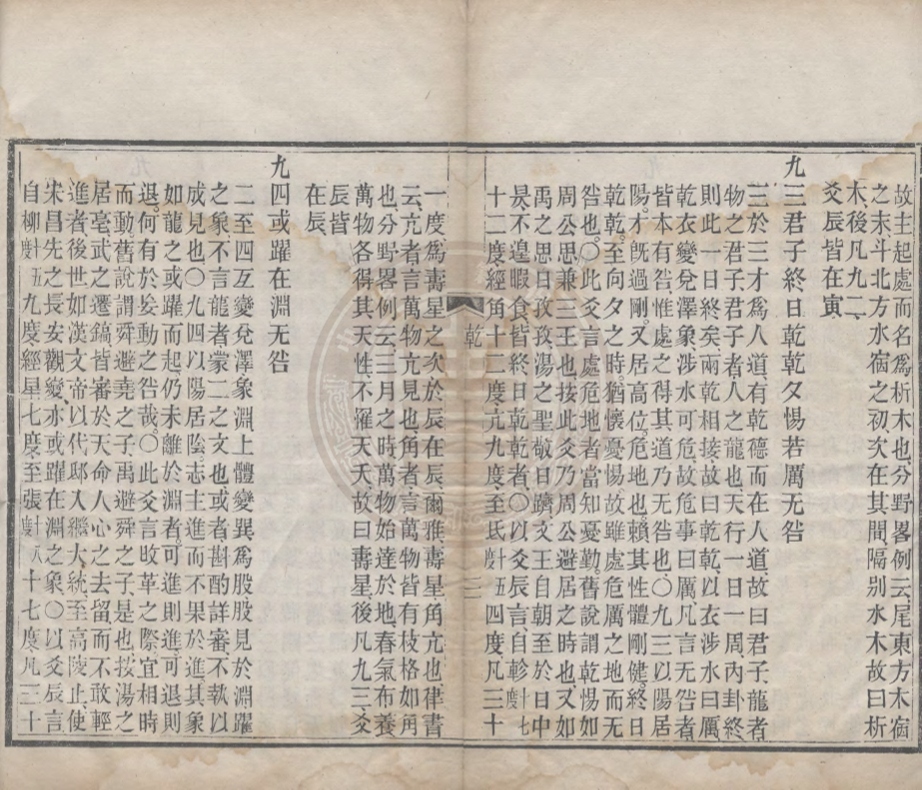 故主起處而名爲析木也分野畧例云尾東方木宿
之末斗北方水宿之初次在其間隔別水木故曰析
木後凡九二
爻辰皆在寅
九三君子終日乾乾夕惕若厲无咎
三於三才爲人道有乾德而在人道故曰君子龍者
物之君子君子者人之龍也天行一日一周內卦終
則此一日終矣兩乾相接故曰乾乾以衣涉水曰厲
乾衣變兌澤象涉水可危故危事曰厲凡言无咎者
皆本有咎惟處之得其道乃无咎也〇九三以陽居
陽才旣過剛又居高位危地也賴其性體剛健終日
乾乾至向夕之時猶懷憂惕故雖處危厲之地而无
咎也〇此爻言處危地者當知憂勤舊說謂乾惕如
周公思兼三王也按此爻乃周公避居之時也又如
禹之思日孜孜湯之聖敬日躋文王自朝至於日中
昃不遑暇食皆終日乾乾者〇以爻辰言自軫十七度
十二度經角十二度亢九度至氐五度四度凡三十
乾
三
一度爲壽星之次於辰在辰爾雅壽星角亢也律書
云亢者言萬物亢見也角者言萬物皆有枝格如角
也分野畧例云三月之時萬物始達於地春氣布養
萬物各得其天性不罹天夭故曰壽星後凡九三爻
辰皆
在辰
九四或躍在淵无咎
二至四互變兌澤象淵上體變巽爲股股見於淵躍
之象不言龍者蒙二之文也或者斟酌詳審不執以
成見也〇九四以陽居陰志主進而不果於進其象
如龍之或躍而起仍未離於淵者可進則進可退則
退何有於妄動之咎哉〇此爻言改革之際宜相時
而動舊說謂舜避堯之子禹避舜之子是也按湯之
居亳武之遷鎬皆審於天命人心之去留而不敢輕
進者後世如漢文帝以代邸入繼大統至高陵止使
宋昌先之長安觀變亦或躍在淵之象〇以爻辰言
自柳九度經星七度至張十七度凡三十